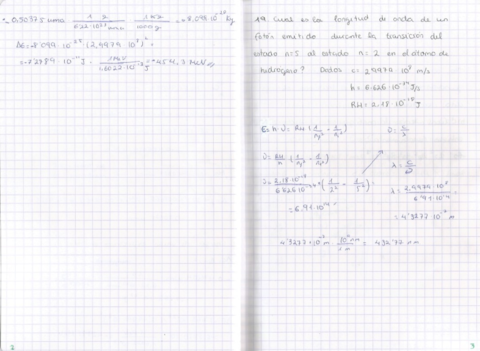 = 0.50375 uma · 1 g / 6.022·10²³ uma · 1 kg / 1000 g = 8.099·10⁻²⁸ kg
ΔE = 8.099·10⁻²⁸ (2,9979·10⁸)² =
1 MeV
19. Cual es la longitud de onda de un
fotón emitido durante la transición del
estado n=5 al estado n=2 en el átomo de
hidrógeno? Datos c = 2,9979·10⁸ m/s
h = 6.626·10⁻³⁴ J/s
RH = 2.18·10⁻¹⁸ J
E = h·υ = RH (1/nf² - 1/ni²) υ = c/λ
υ = RH/h (1/nf² - 1/ni²) λ = c/υ
υ = 2.18·10⁻¹⁸ / 6.626·10⁻³⁴ (1/2² - 1/5²) λ = 2,9979·10⁸ / 6.91·10¹⁴ =
= 6.91·10¹⁴ = 4'3277·10⁻⁷ m
4'3277·10⁻⁷ m · 10⁹ nm / 1 m = 432'77 nm
2 3